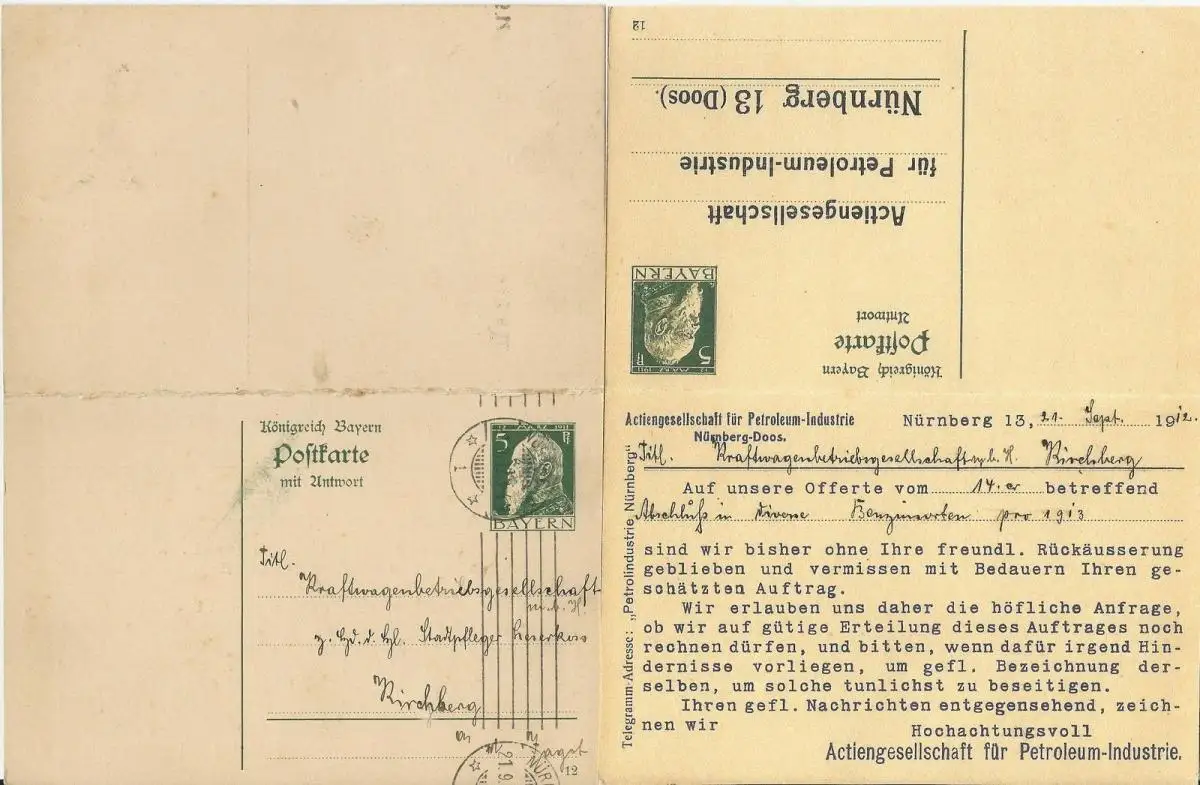 Königreich Bayern
Postkarte
mit Antwort
5
Pf
BAYERN
Titl.
Kraftwagenbetriebsgesellschaft
m. b. H.
z. Hd. d. Hl. Stadtpfleger
Kirchberg
21.9.
12
12
Nürnberg 13 (Doos).
für Petroleum-Industrie
Actiengesellschaft
BAYERN
5
Pf
12. MÄRZ 1911
Königreich Bayern
Postkarte
Antwort
Actiengesellschaft für Petroleum-Industrie
Nürnberg-Doos.
Nürnberg 13, 21. Sept. 1912.
Titl. Kraftwagenbetriebsgesellschaft m. b. H. Kirchberg
Auf unsere Offerte vom 14. cr betreffend
Abschluß in diverse Benzinsorten pro 1913
sind wir bisher ohne Ihre freundl. Rückäusserung
geblieben und vermissen mit Bedauern Ihren ge-
schätzten Auftrag.
Wir erlauben uns daher die höfliche Anfrage,
ob wir auf gütige Erteilung dieses Auftrages noch
rechnen dürfen, und bitten, wenn dafür irgend Hin-
dernisse vorliegen, um gefl. Bezeichnung der-
selben, um solche tunlichst zu beseitigen.
Ihren gefl. Nachrichten entgegensehend, zeich-
nen wir
Hochachtungsvoll
Actiengesellschaft für Petroleum-Industrie.
Telegramm-Adresse: „Petrolindustrie Nürnberg"